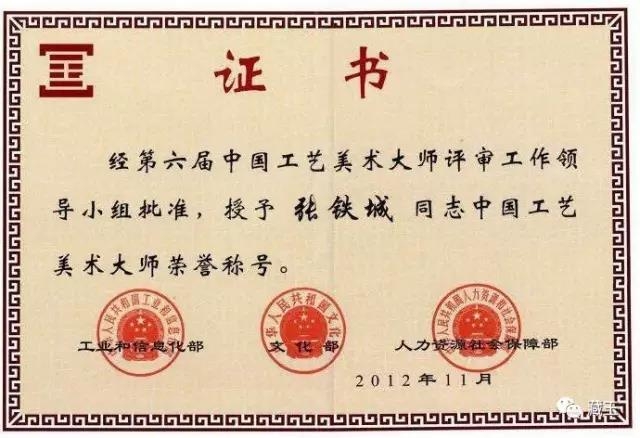 证书
经第六届中国工艺美术大师评审工作领
导小组批准，授予 张铁城 同志中国工艺
美术大师荣誉称号。
中华人民共和国工业和信息化部
中华人民共和国文化部
中华人民共和国人力资源和社会保障部
工业和信息化部 文化部 人力资源社会保障部
2012年11月
藏玉